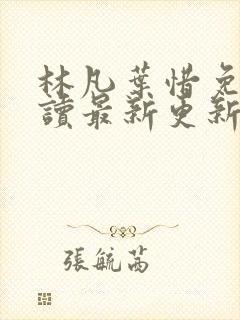 林凡葉惜免
讀最新更新
張毓茜